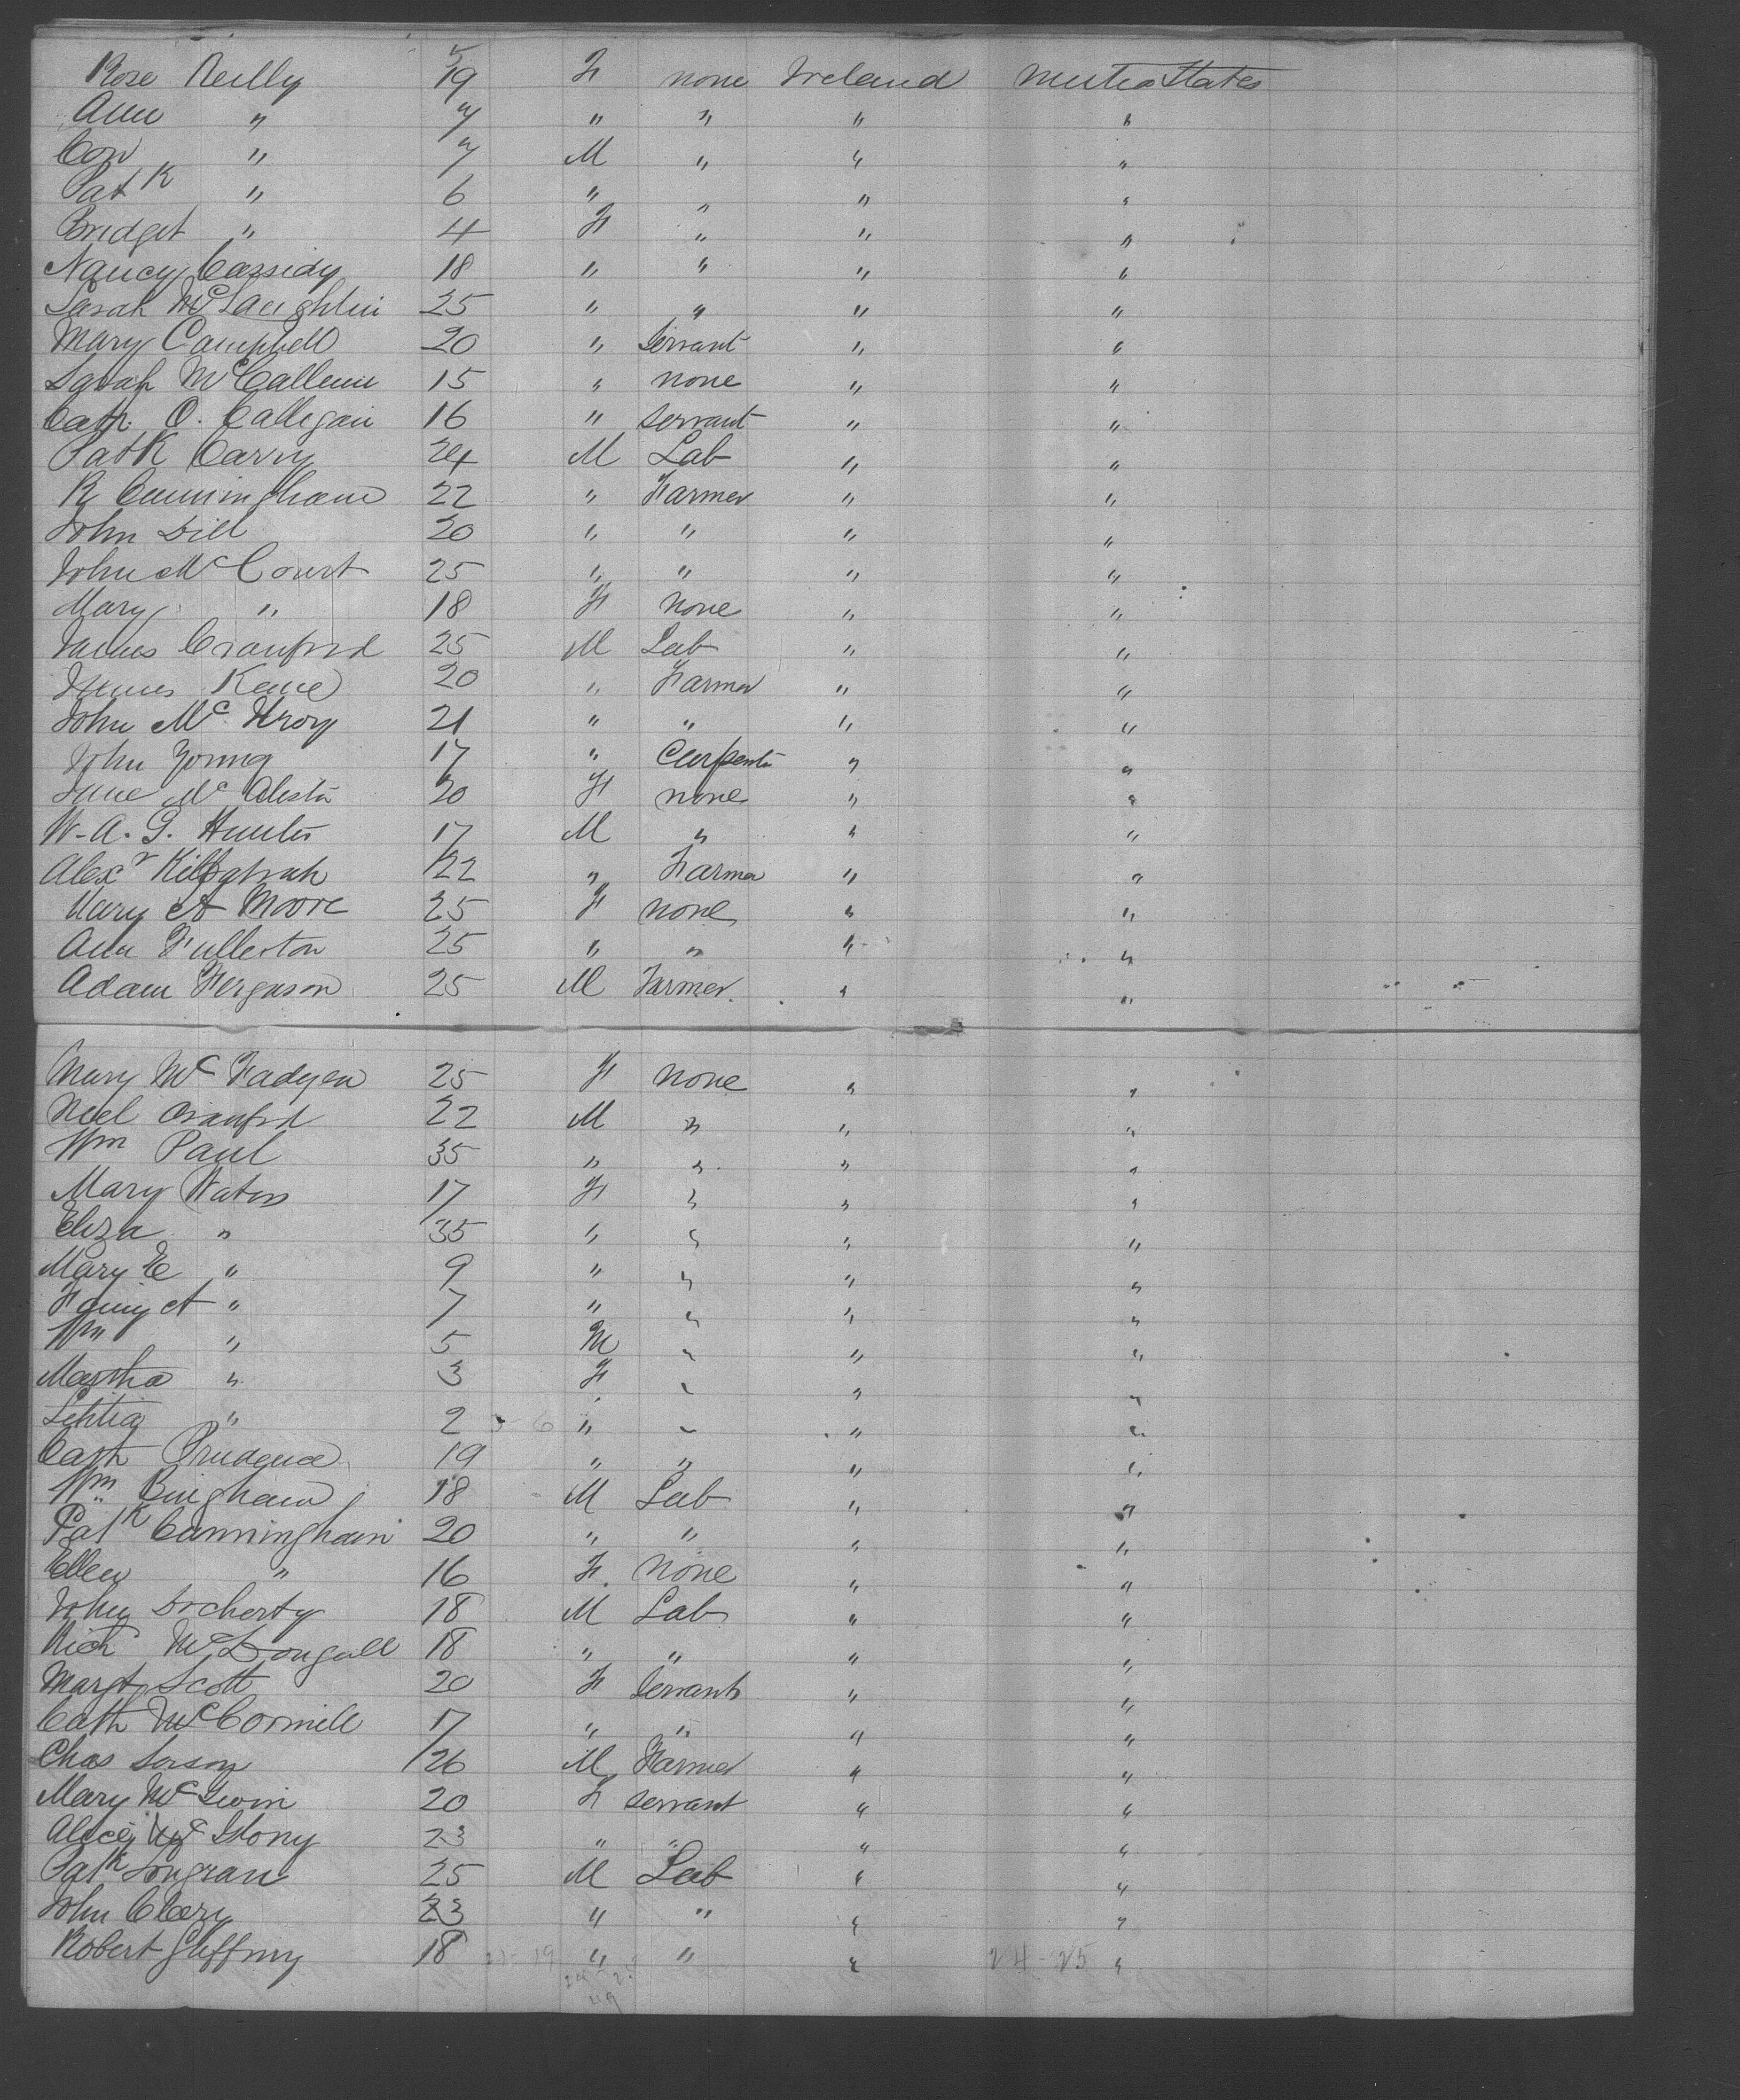 Rose Reilly 19 F none Ireland United States
Ann " 7 " " " "
Con " 7 M " " "
Pat K " 6 " " " "
Bridget " 4 F " " "
Nancy Cassidy 18 " " " "
Sarah McLaughlin 25 " " " "
Mary Campbell 20 " Servant " "
Sarah McCallum 15 " none " "
Cath. O. Callegan 16 " servant " "
PatK Carry 24 M Lab " "
R Cunningham 22 " Farmer " "
John Dill 20 " " " "
John McCourt 25 " " " "
Mary " 18 F None " "
James Cranford 25 M Lab " "
James Kane 20 " Farmer " "
John Mc 21 " " " "
John Young 17 " Carpentr " "
Jane McAlister 20 F none " "
W. A. G. Hunter 17 M " " "
Alexr Kilpatrick 22 " Farmer " "
Mary A Moore 25 F none " "
Ann Fullerton 25 " " " "
Adam Ferguson 25 M Farmer. " "
Mary McFadyen 25 F none " "
Neel Cranford 22 M " " "
Wm Paul 35 " " " "
Mary Waters 17 F " " "
Eliza " 35 " " " "
Mary E " 9 " " " "
Fanny A " 7 " " " "
Wm " 5 M " " "
Martha " 3 F " " "
Letitia " 2 " " " "
Cath Prudence 19 " " " "
Wm Bingham 18 M Lab " "
Patk Cunningham 20 " " " "
Ellen " 16 F. None " "
John Docherty 18 M Lab " "
Rich McDougall 18 " " " "
Margt Scott 20 F Servants " "
Cath McCormick 17 " " " "
Chas 26 M Farmer " "
Mary McGwin 20 F servant " "
Alice Mc 23 " " " "
Patk Longran 25 M Lab " "
John Cleary 23 " " " "
Robert 18 " " " 24 - 25 "